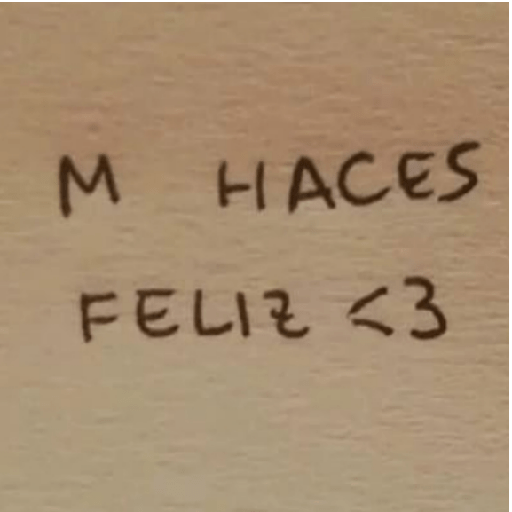 M HACES
FELIZ <3